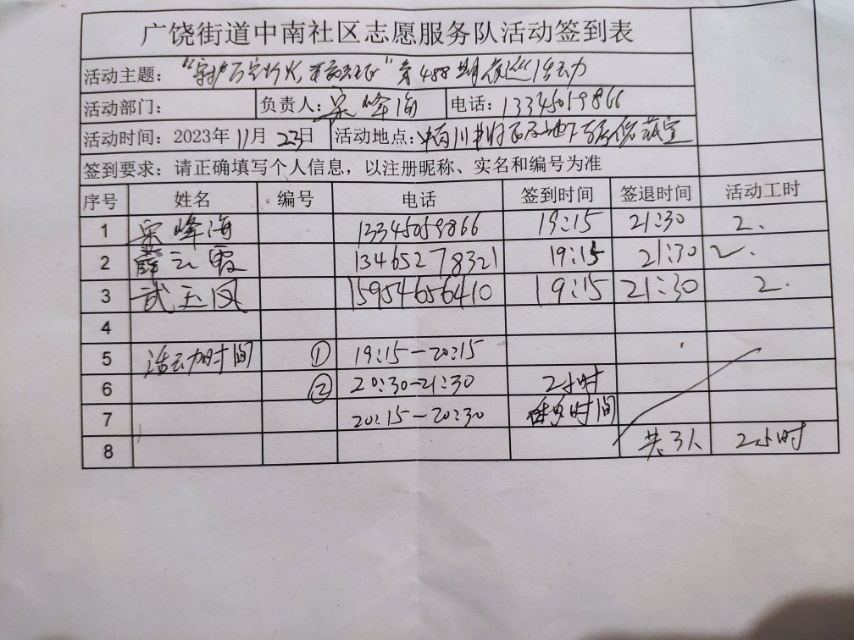 广饶街道中南社区志愿服务队活动签到表
活动主题： 第488期夜巡活动
活动部门： 负责人：宋峰海 电话：13345059866
活动时间：2023年11月23日 活动地点：
签到要求：请正确填写个人信息，以注册昵称、实名和编号为准
序号 姓名 编号 电话 签到时间 签退时间 活动工时
1 宋峰海 13345059866 19:15 21:30 2.
2 薛云霞 13465278321 19:15 21:30 2.
3 武玉凤 15954656410 19:15 21:30 2.
4
5 活动时间 ① 19:15-20:15
6 ② 20:30-21:30 2小时
7 20:15-20:30 时间
8 共3人 2小时